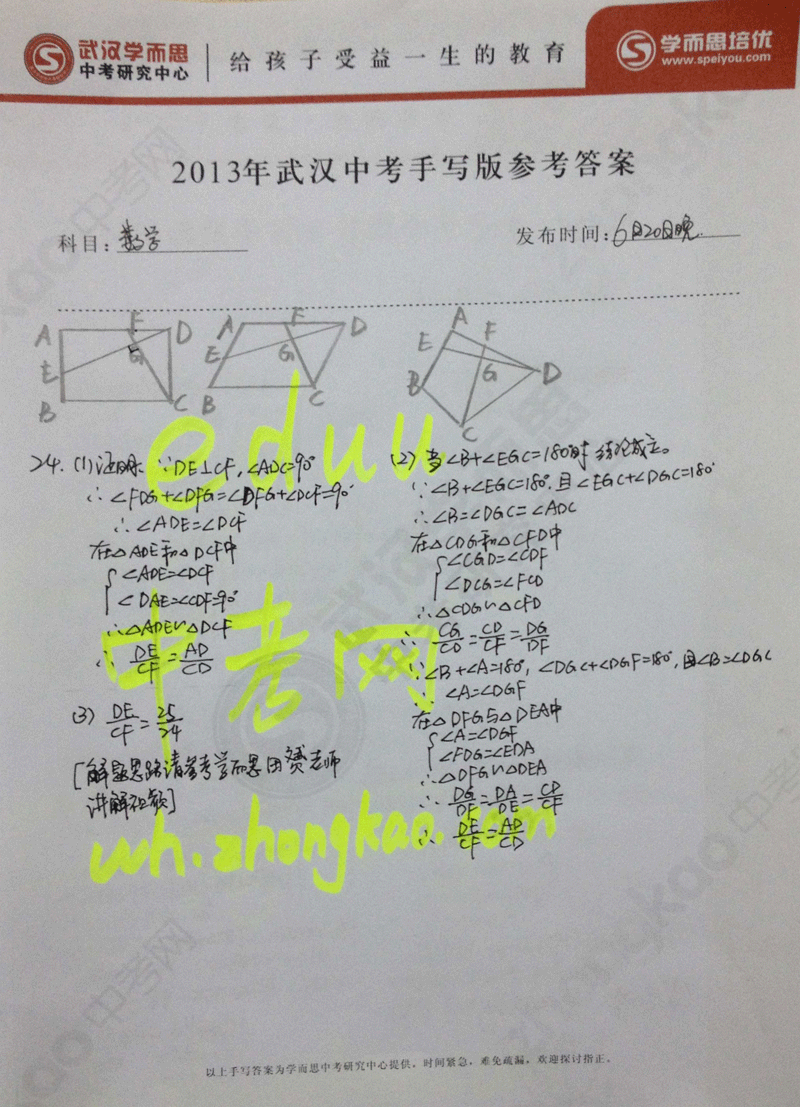 武汉学而思
中考研究中心
给孩子受益一生的教育
学而思培优
www.speiyou.com
2013年武汉中考手写版参考答案
科目:数学
发布时间:6月20日晚
A F D
E G
B C
A F D
E G
B C
A
E F
G D
B
C
24. (1)证明 ∵DE⊥CF,∠ADC=90°
∴∠FDG+∠DFG=∠DFG+∠DCF=90°
∴∠ADE=∠DCF
在△ADE和△DCF中
∠ADE=∠DCF
∠DAE=∠CDF=90°
∴△ADE∽△DCF
∴ DE/CF=AD/CD
(3) DE/CF=25/24
[解题思路请参考学而思田赟老师
讲解视频]
(2)当∠B+∠EGC=180°时结论成立。
∵∠B+∠EGC=180°,且∠EGC+∠DGC=180°
∴∠B=∠DGC=∠ADC
在△CDG和△CFD中
∠CGD=∠CDF
∠DCG=∠FCD
∴△CDG∽△CFD
∴ CG/CD=CD/CF=DG/DF
∵∠B+∠A=180°,∠DGC+∠DGF=180°,且∠B=∠DGC
∴∠A=∠DGF
在△DFG与△DEA中
∠A=∠DGF
∠FDG=∠EDA
∴△DFG∽△DEA
∴ DG/DF=DA/DE=CD/CF
∴ DE/CF=AD/CD
eduu
中考网
wh.zhongkao.com
以上手写答案为学而思中考研究中心提供,时间紧急,难免疏漏,欢迎探讨指正。